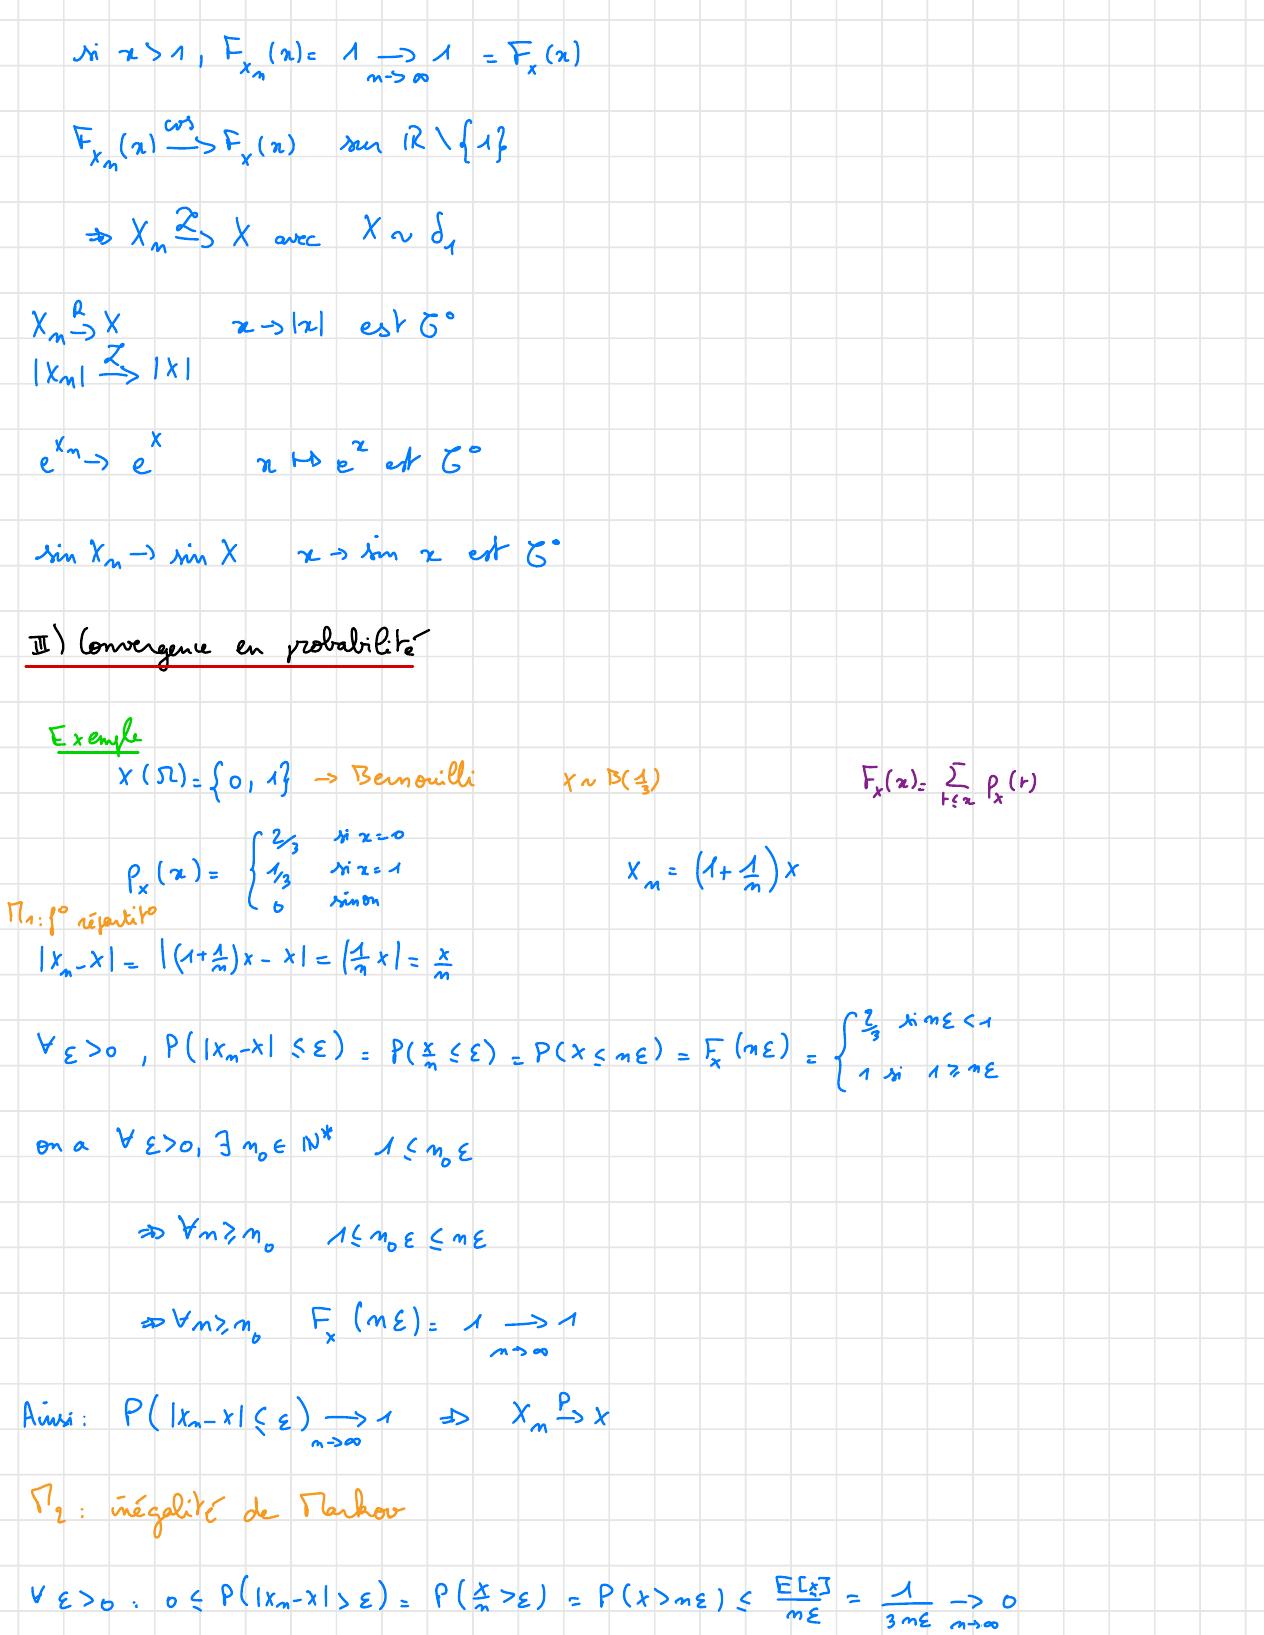 si x > 1, F_{X_n}(x) = 1 →_{n→∞} 1 = F_X(x)
F_{X_n}(x) →^{cvs} F_X(x) sur ℝ \ {1}
⇒ X_n →^{ℒ} X avec X ~ δ_1
X_n →^{ℒ} X x → |x| est C°
|X_n| →^{ℒ} |X|
e^{X_n} → e^X x ↦ e^x est C°
sin X_n → sin X x → sin x est C°
III) Convergence en probabilité
Exemple
X(Ω) = {0, 1} → Bernouilli X ~ B(1/3) F_X(x) = Σ_{t≤x} P_X(t)
P_X(x) = { 2/3 si x = 0
1/3 si x = 1 X_n = (1 + 1/n) X
0 sinon
M1 : f° répartit°
|X_n - X| = |(1 + 1/n) X - X| = |1/n X| = X/n
∀ ε > 0, P(|X_n - X| ≤ ε) = P(X/n ≤ ε) = P(X ≤ nε) = F_X(nε) = { 2/3 si nε < 1
1 si 1 ≥ nε
on a ∀ ε > 0, ∃ n_0 ∈ ℕ* 1 ≤ n_0 ε
⇒ ∀ n ≥ n_0 1 ≤ n_0 ε ≤ nε
⇒ ∀ n ≥ n_0 F_X(nε) = 1 →_{n→∞} 1
Ainsi : P(|X_n - X| ≤ ε) →_{n→∞} 1 ⇒ X_n →^{P} X
M2 : inégalité de Markov
∀ ε > 0 : 0 ≤ P(|X_n - X| > ε) = P(X/n > ε) = P(X > nε) ≤ E[X]/nε = 1/3nε →_{n→∞} 0